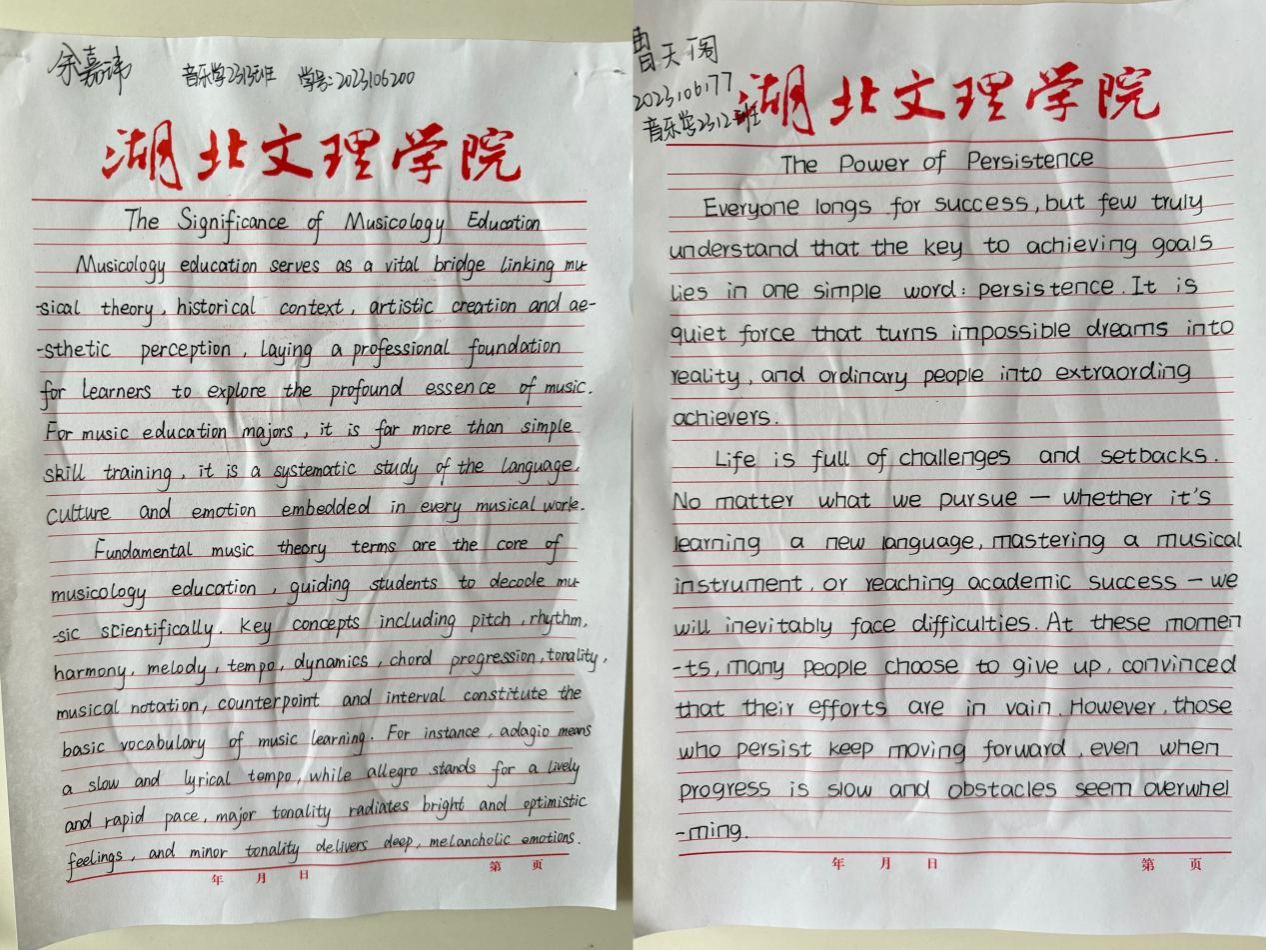 余嘉玮 音乐学2313班 学号:2023106200
湖北文理学院
The Significance of Musicology Education
Musicology education serves as a vital bridge linking mu-
-sical theory, historical context, artistic creation and ae-
-sthetic perception, laying a professional foundation
for learners to explore the profound essence of music.
For music education majors, it is far more than simple
skill training, it is a systematic study of the language,
culture and emotion embedded in every musical work.
Fundamental music theory terms are the core of
musicology education, guiding students to decode mu-
-sic scientifically. Key concepts including pitch, rhythm,
harmony, melody, tempo, dynamics, chord progression, tonality,
musical notation, counterpoint and interval constitute the
basic vocabulary of music learning. For instance, adagio means
a slow and lyrical tempo, while allegro stands for a lively
and rapid pace, major tonality radiates bright and optimistic
feelings, and minor tonality delivers deep, melancholic emotions.
年 月 日 第 页
曹天
2023106177
音乐学2312班
湖北文理学院
The Power of Persistence
Everyone longs for success, but few truly
understand that the key to achieving goals
lies in one simple word: persistence. It is
quiet force that turns impossible dreams into
reality, and ordinary people into extraording
achievers.
Life is full of challenges and setbacks.
No matter what we pursue — whether it's
learning a new language, mastering a musical
instrument, or reaching academic success — we
will inevitably face difficulties. At these momen
-ts, many people choose to give up, convinced
that their efforts are in vain. However, those
who persist keep moving forward, even when
progress is slow and obstacles seem overwhel
-ming.
年 月 日 第 页